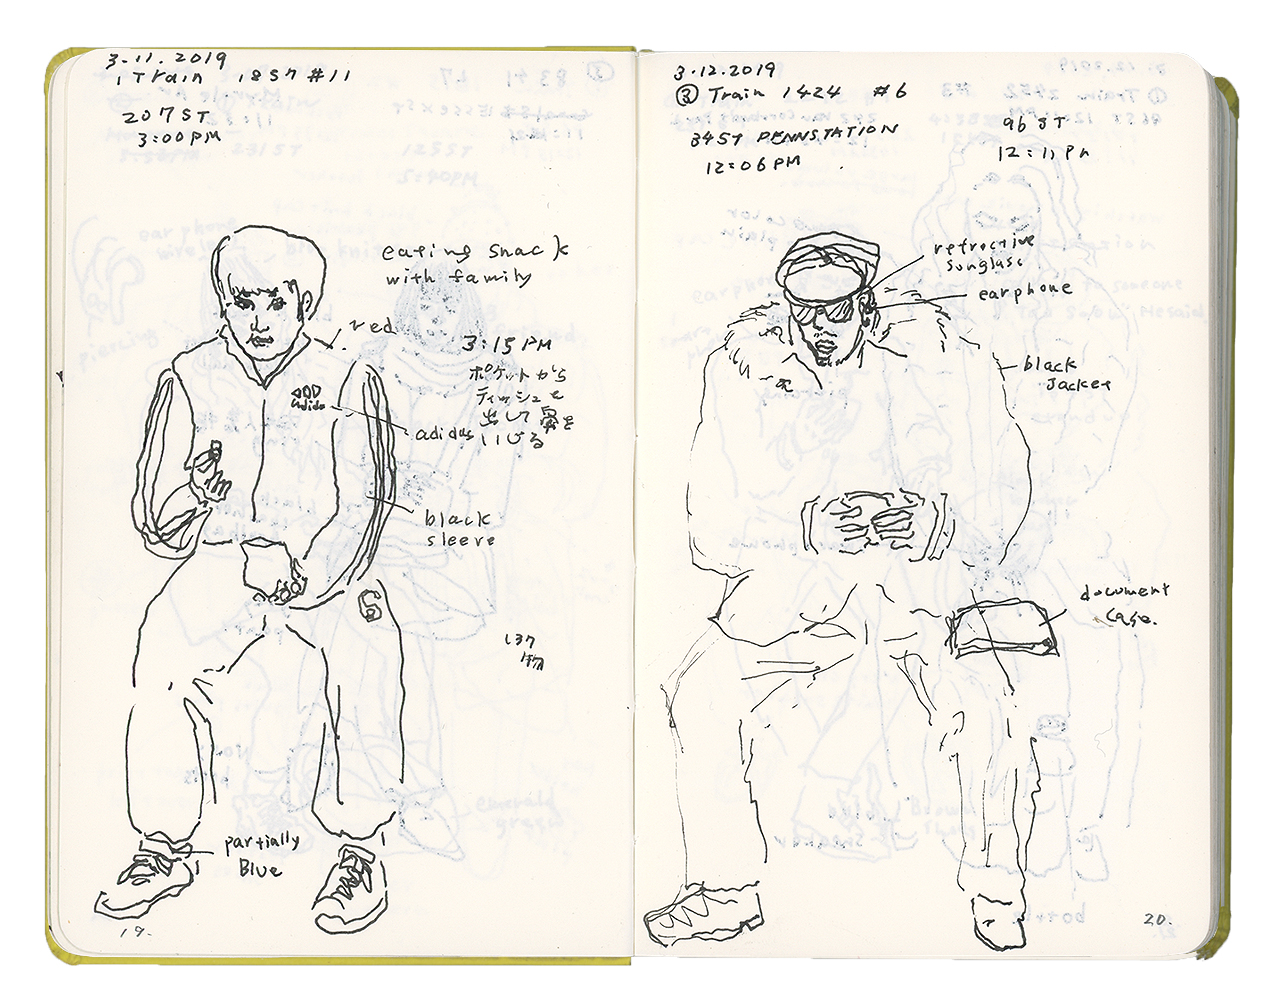 3.11.2019
1 Train 1857 #11
207 ST
3:00PM
eating snack
with family
red
3:15 PM
ポケットから
ティッシュを
出して鼻を
いじる
adidas
adidas
black
sleeve
6
partially
Blue
19.
3.12.2019
③ Train 1424 #6
34ST PENNSTATION
12:06PM
96 ST
12:11 PM
refractive
sunglass.
earphone
black
Jacket
document
case.
20.